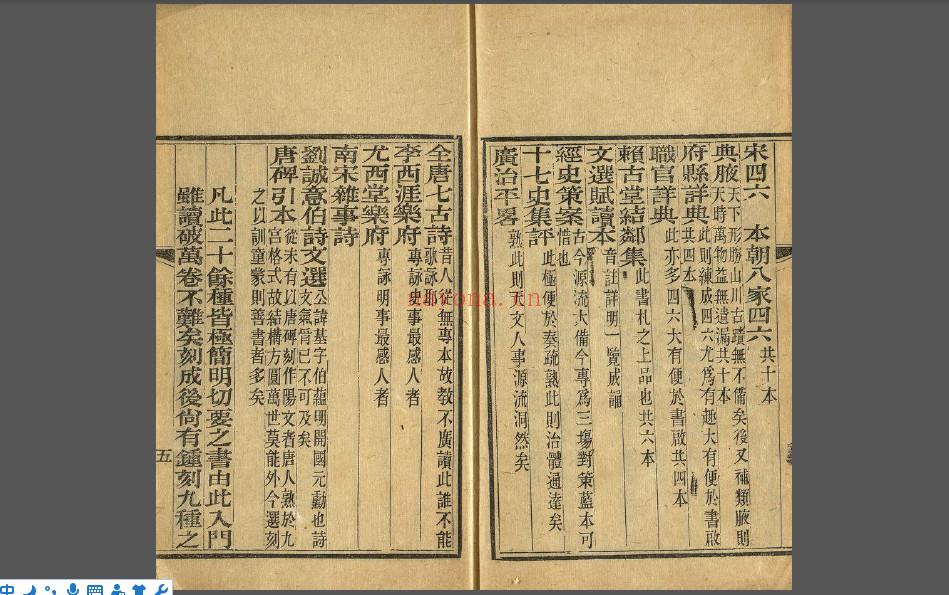 宋四六　本朝八家四六共十本
典腋天下形勝山川古蹟無不備矣後又補類腋則
天時萬物益無遺漏共十本
府縣詳典此則練成四六尤爲有趣大有便於書啟
共四本
職官詳典此亦多四六大有便於書啟共四本
賴古堂結鄰集此書札之上品也共六本
文選賦讀本音註詳明一覽成誦
經史策案古今源流大備今專爲三場對策藍本可
惜也
十七史集評此極便於奏疏熟此則治體通達矣
廣治平畧熟此則天文人事源流洞然矣
全唐七古詩昔人從無專本故教不廣讀此誰不能
歌詠耶
李西涯樂府專詠史事最感人者
尤西堂樂府專詠明事最感人者
南宋雜事詩
劉誠意伯詩文選公諱基字伯蘊明開國元勳也詩
文氣骨已不可及矣
唐碑引本從未有以唐碑刻作陽文者唐人熟於九
宮格式故結構方圓萬世莫能外今選刻
之以訓童蒙則善書者多矣
凡此二十餘種皆極簡明切要之書由此入門
雖讀破萬卷不難矣刻成後尙有鍾刻九種之
五